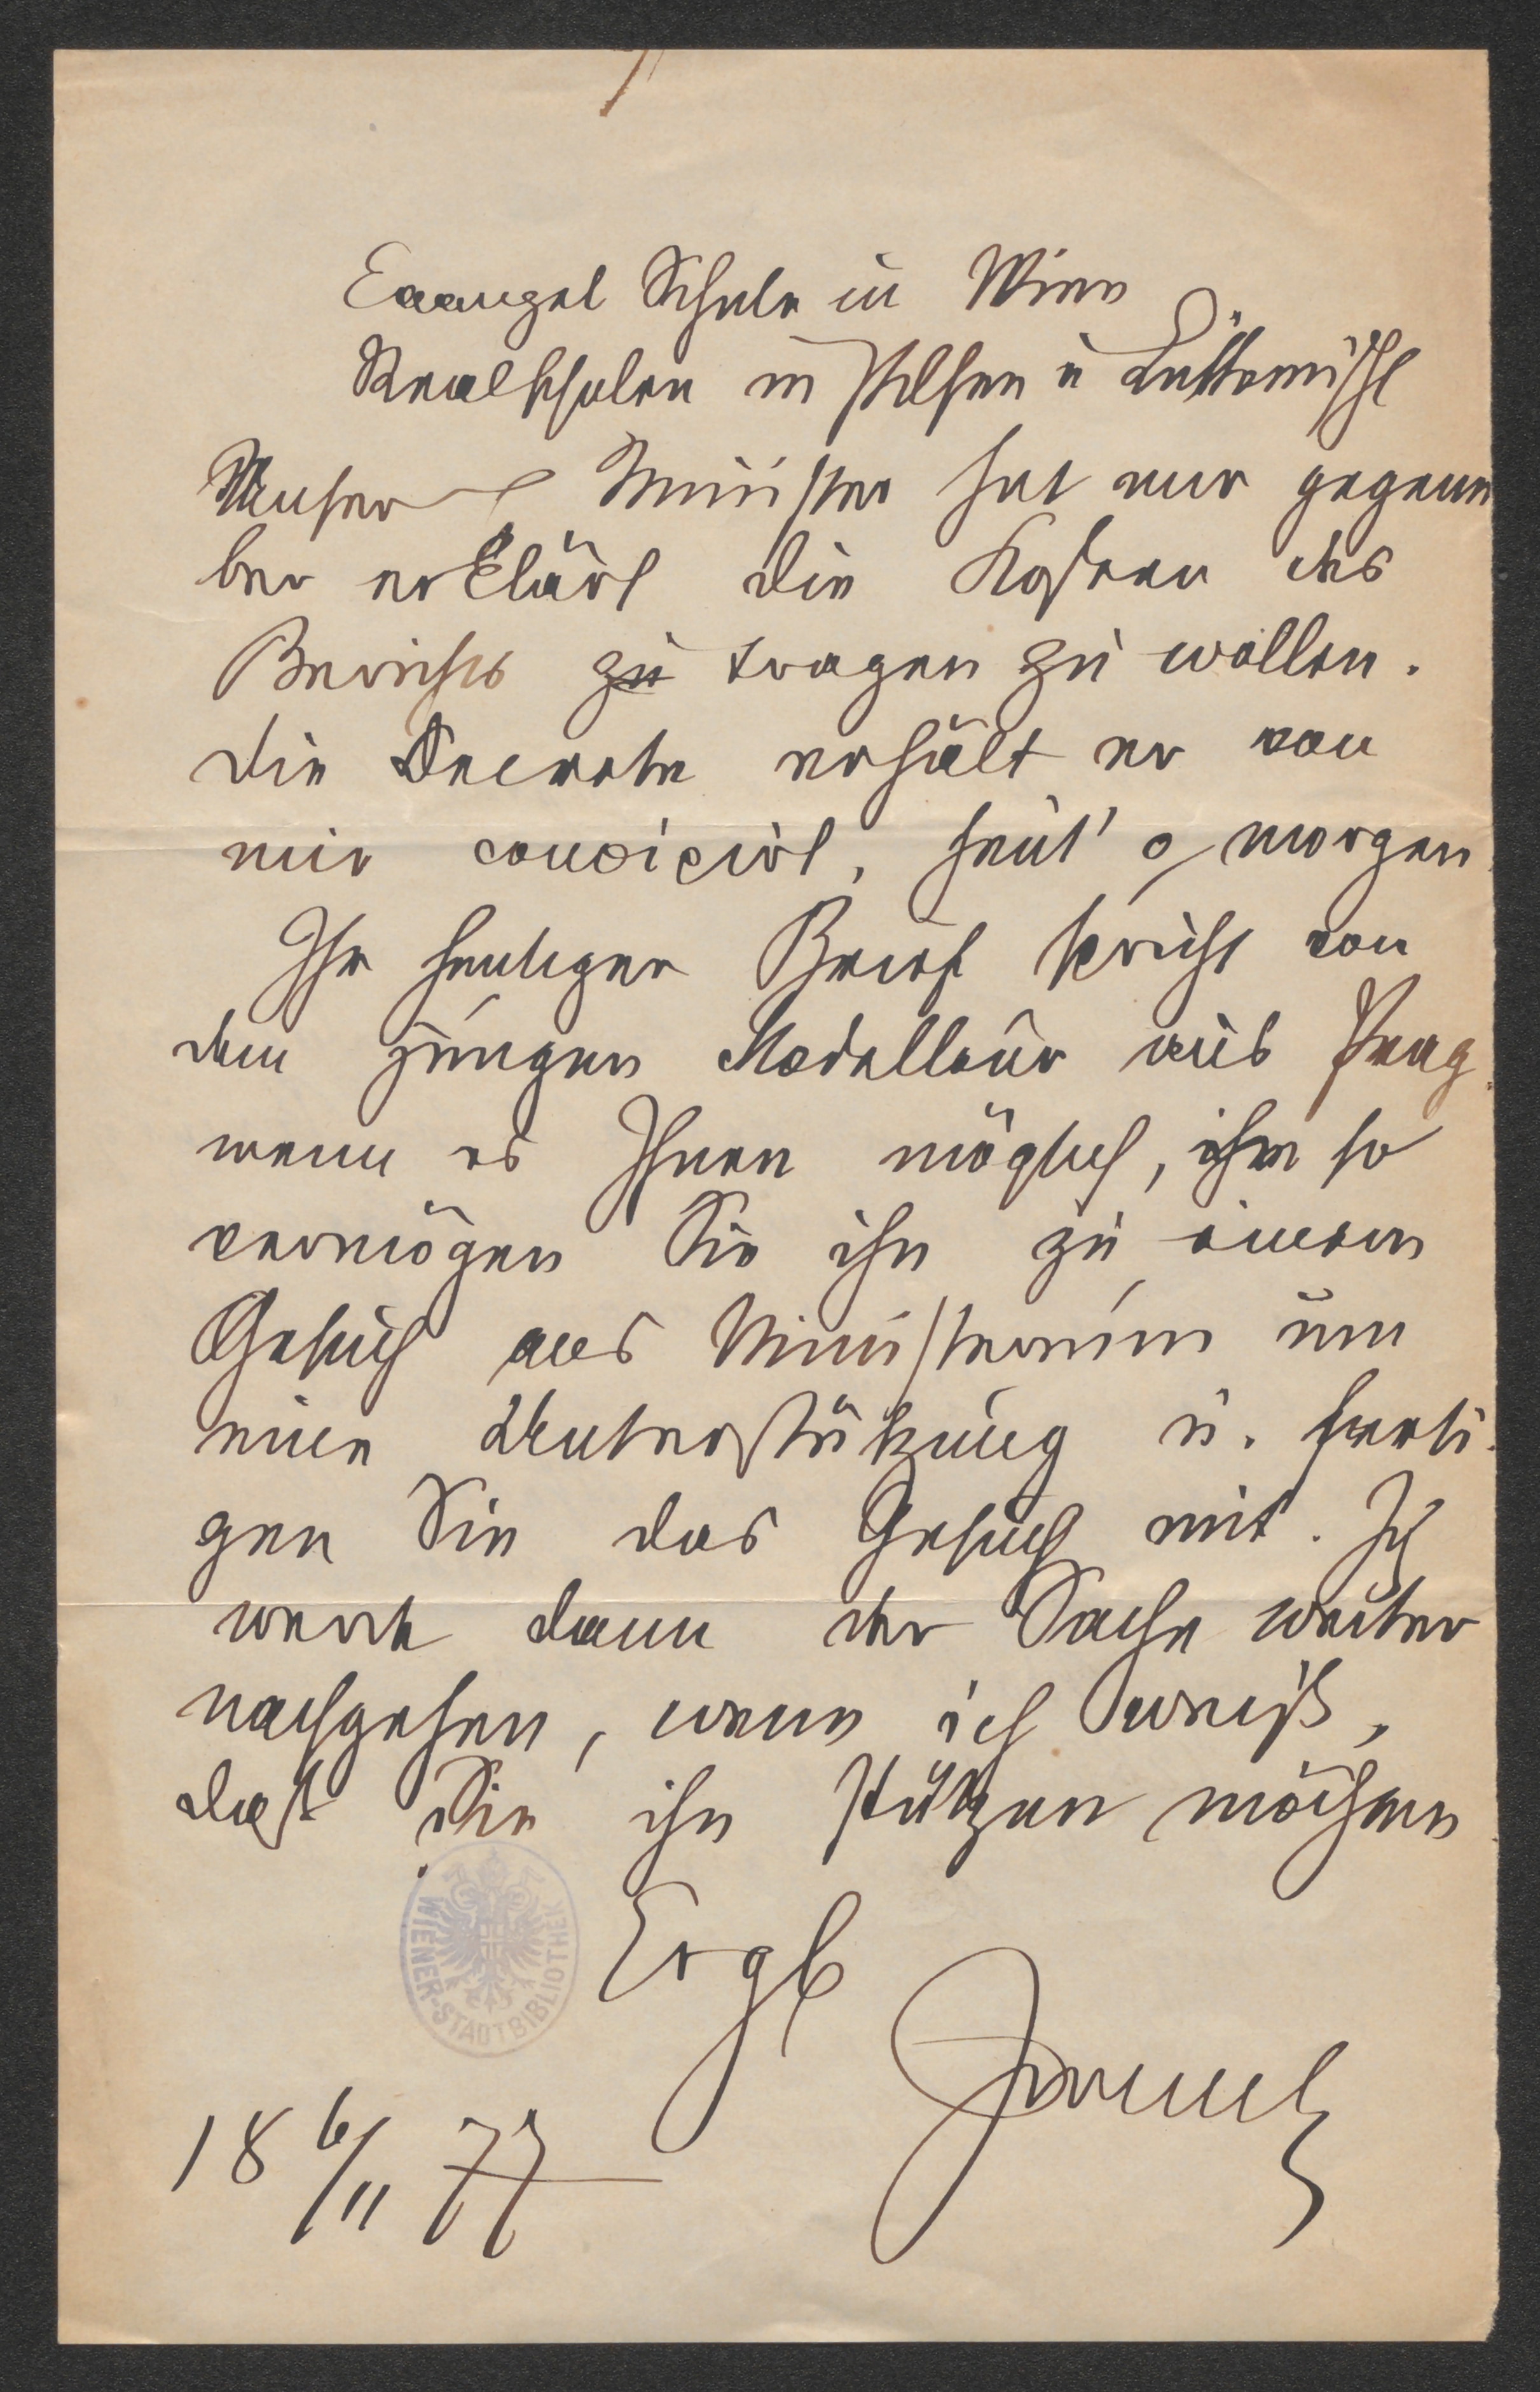 Evangel Schule in Wien
Realschulen in Pilsen u Leitomischl
Unser Minister hat mir gegenü
ber erklärt die Kosten des
Berichts zu tragen zu wollen.
Die Decrete erhält er von
mir concipirt, heut' o morgen.
Ihr heutiger Brief spricht von
dem jungen Modelleur aus Prag.
wenn es Ihnen möglich, ihm so
vermögen Sie ihn zu einem
Gesuch ans Ministerium um
eine Unterstützung u. ferti-
gen Sie das Gesuch mit. Ich
werde dann der Sache weiter
nachgehen, wenn ich weiß,
daß Sie ihn stützen möchten
Ergb
18 6/11 77
WIENER-STADTBIBLIOTHEK